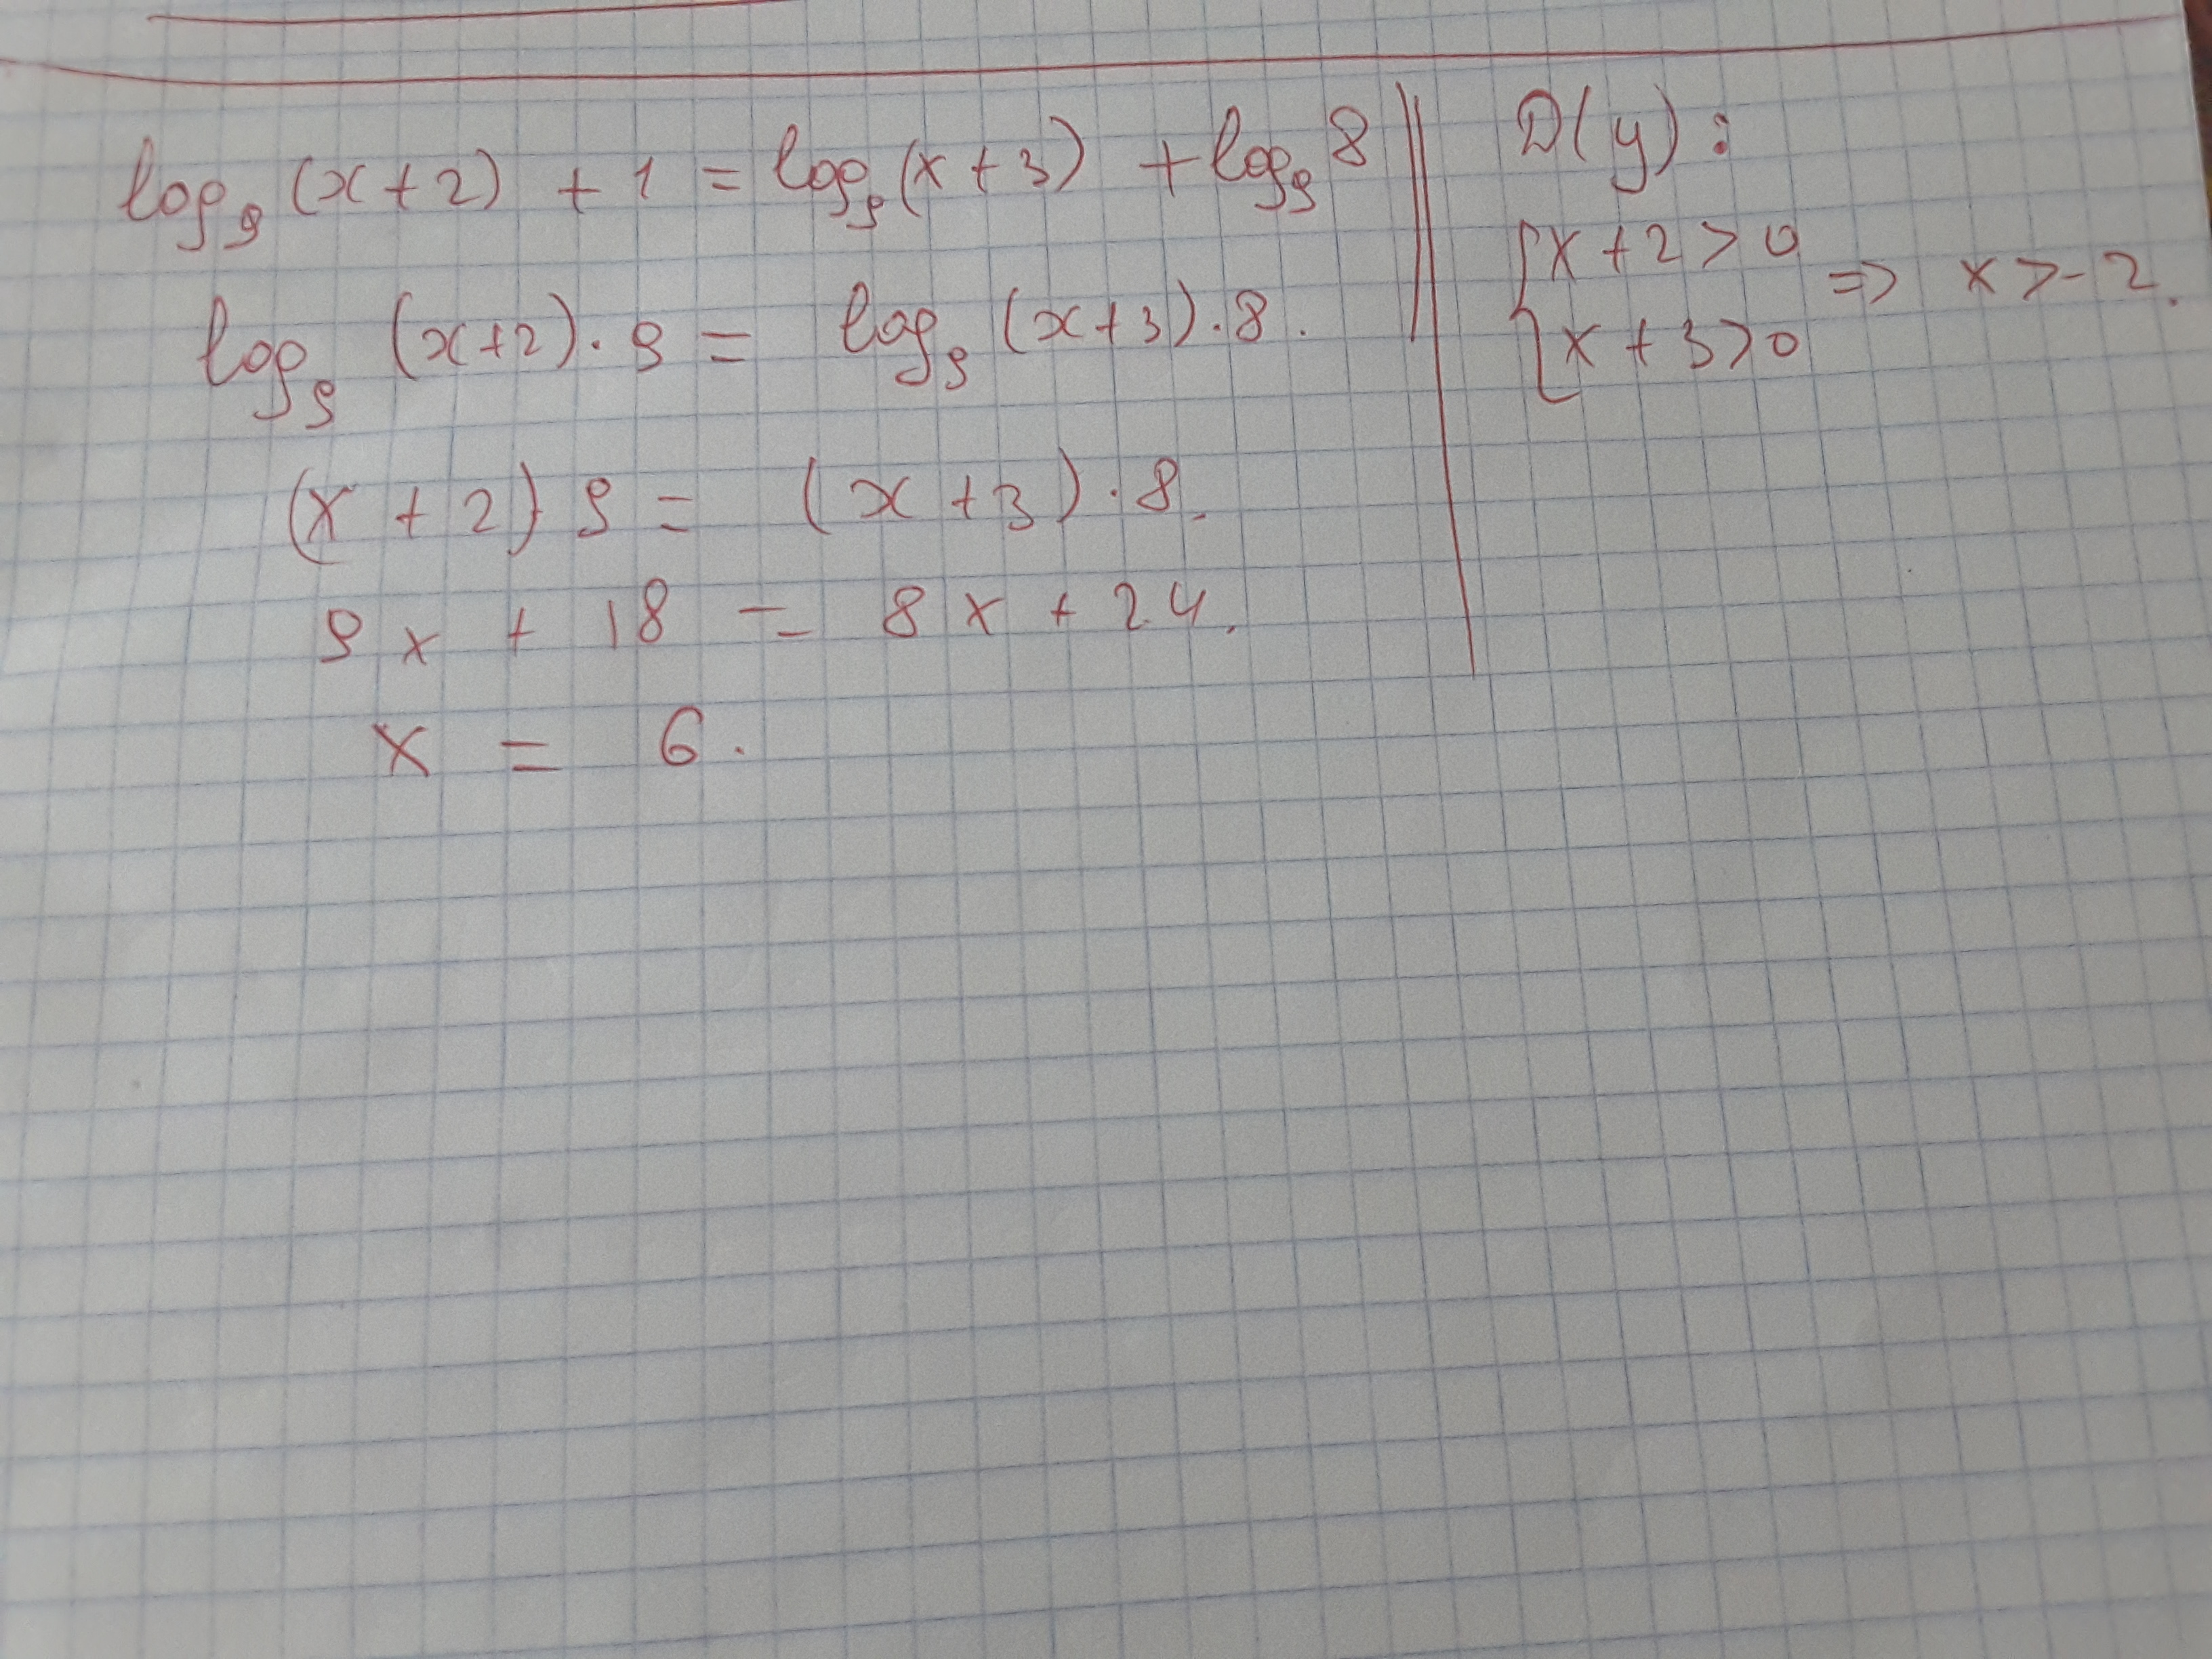 log₉ (x+2) + 1 = log₉ (x+3) + log₉ 8
log₉ (x+2) · 9 = log₉ (x+3) · 8.
(x + 2) 9 = (x + 3) · 8.
9x + 18 = 8x + 24.
x = 6.
D(y):
{x + 2 > 0
{x + 3 > 0 => x > -2.